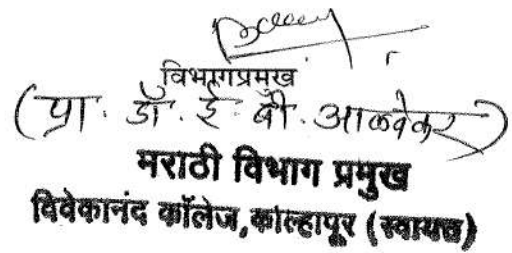 विभागप्रमुख
(प्रा. डॉ. ई. बी. आळवेकर)
मराठी विभाग प्रमुख
विवेकानंद कॉलेज, कोल्हापूर (स्वायत्त)